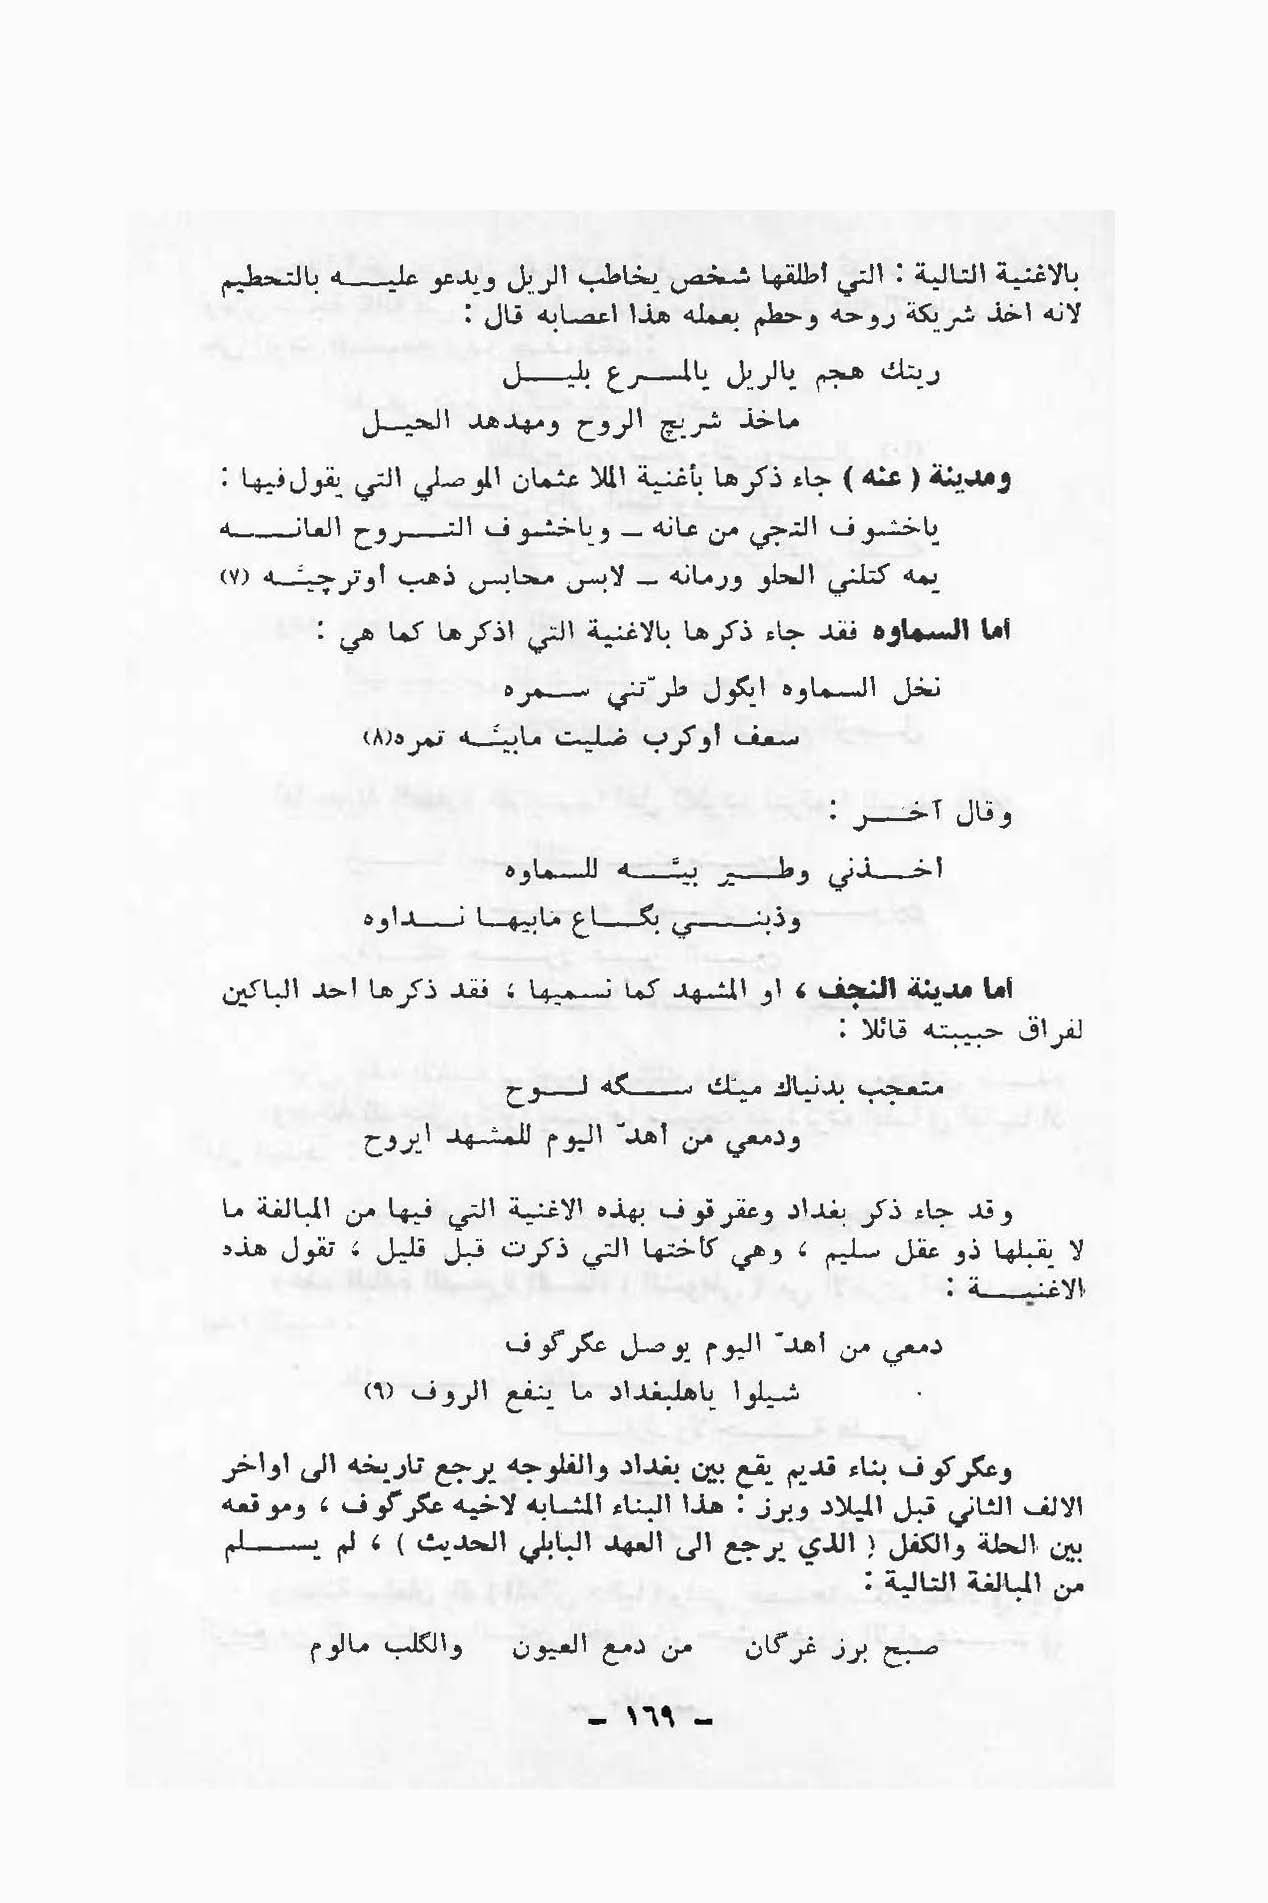 بالاغنية التالية : التي أطلقها شخص يخاطب الريل ويدعو عليه بالتحطيم
لانه اخذ شريكة روحه وحطم بعمله هذا اعصابه قال :
ريتك هجم يالريل يالمسرع بليل
ماخذ شريچ الروح ومهدهد الحيل
ومدينة ( عنه ) جاء ذكرها بأغنية الملا عثمان الموصلي التي يقول فيها :
ياخشوف التجي من عانه – وياخشوف التروح العانه
يمه كتلني الحلو ورمانه – لابس محابس ذهب أوترچيّه (٧)
أما السماوه فقد جاء ذكرها بالاغنية التي اذكرها كما هي :
نخل السماوه ايگول طرّتني سمره
سعف أوكرب ضليت مابيّه تمره (٨)
وقال آخر :
أخذني وطير بيّه للسماوه
وذبني بگاع مابيها نداوه
أما مدينة النجف ، او المشهد كما نسميها ، فقد ذكرها احد الباكين
لفراق حبيبته قائلا :
متعجب بدنياك ميتك سگه لوح
ودمعي من أهدّ اليوم للمشهد ايروح
وقد جاء ذكر بغداد وعقرقوف بهذه الاغنية التي فيها من المبالغة ما
لا يقبلها ذو عقل سليم ، وهي كأختها التي ذكرت قبل قليل ، تقول هذه
الاغنية :
دمعي من أهدّ اليوم يوصل عگرگوف
شيلوا ياهلبغداد ما ينفع الروف (٩)
وعگركوف بناء قديم يقع بين بغداد والفلوجه يرجع تاريخه الى اواخر
الالف الثاني قبل الميلاد وبرز : هذا البناء المشابه لاخيه عگرگوف ، وموقعه
بين الحلة والكفل ( الذي يرجع الى العهد البابلي الحديث ) ، لم يسلم
من المبالغة التالية :
صبح برز غرگان من دمع العيون والگلب مالوم
– ١٦٩ –